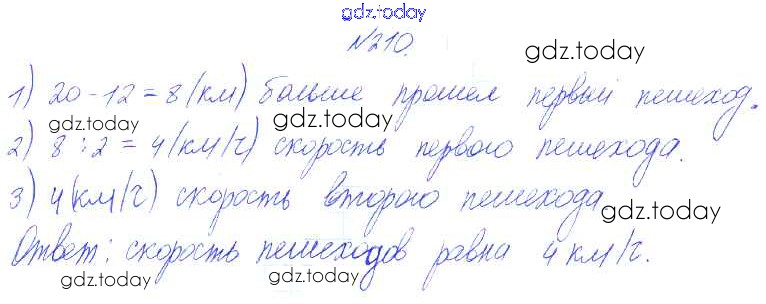 gdz.today
№210.
gdz.today
1) 20-12=8(км) больше прошел первый пешеход.
gdz.today gdz.today
2) 8:2=4(км/ч) скорость первого пешехода.
3) 4(км/ч) скорость второго пешехода
gdz.today
Ответ: скорость пешеходов равна 4км/ч.
gdz.today gdz.today